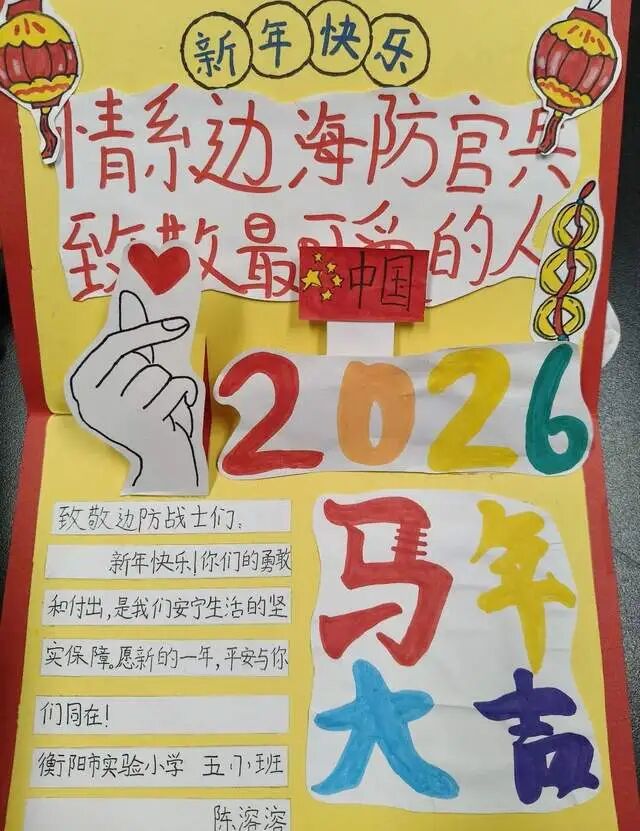 新年快乐
情系边海防官兵
致敬最可爱的人
中国
2026
马年
大吉
致敬边防战士们：
新年快乐！你们的勇敢
和付出，是我们安宁生活的坚
实保障。愿新的一年，平安与你
们同在！
衡阳市实验小学 五小班
陈溶溶